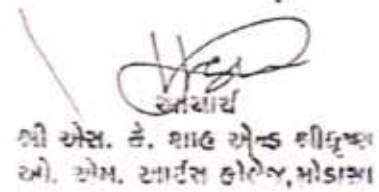 આચાર્ય
શ્રી એસ. કે. શાહ એન્ડ શ્રીકૃષ્ણ
ઓ. એમ. આર્ટસ કોલેજ, મોડાસા